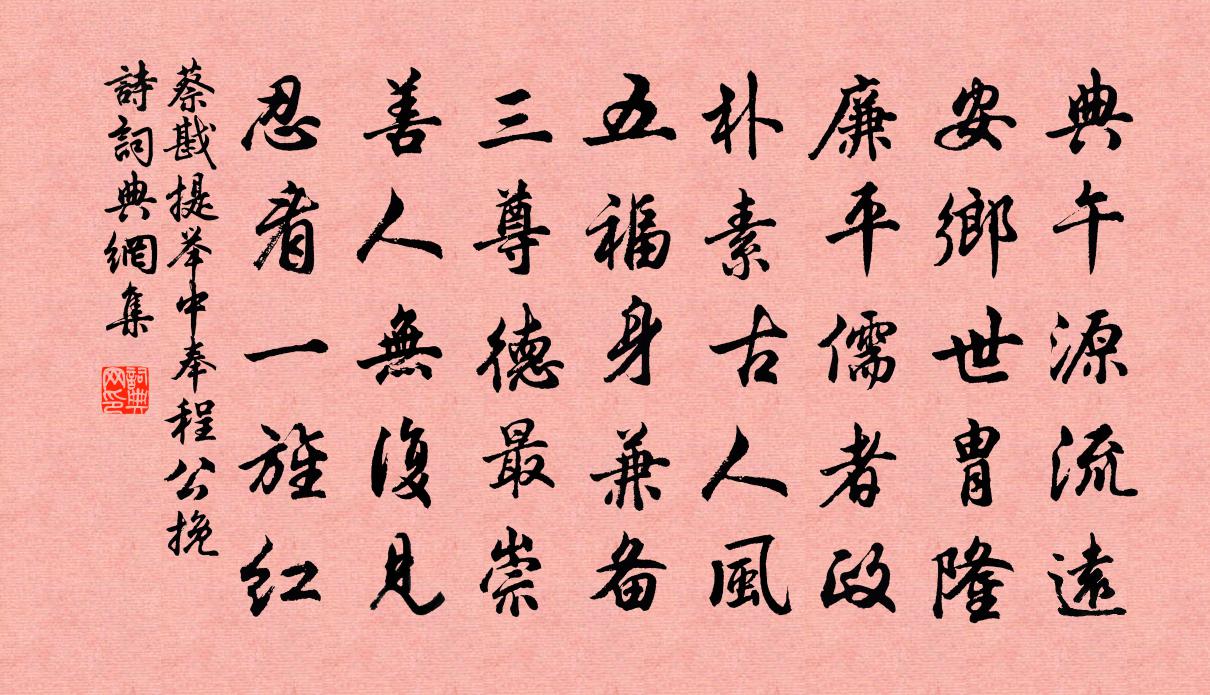 典午源流遠
安鄉世胄隆
廉平儒者政
朴素古人風
五福身兼备
三尊德最崇
善人無復見
忍看一旌红
蔡戡提举中奉程公挽
詩詞典網集
詞典
网印